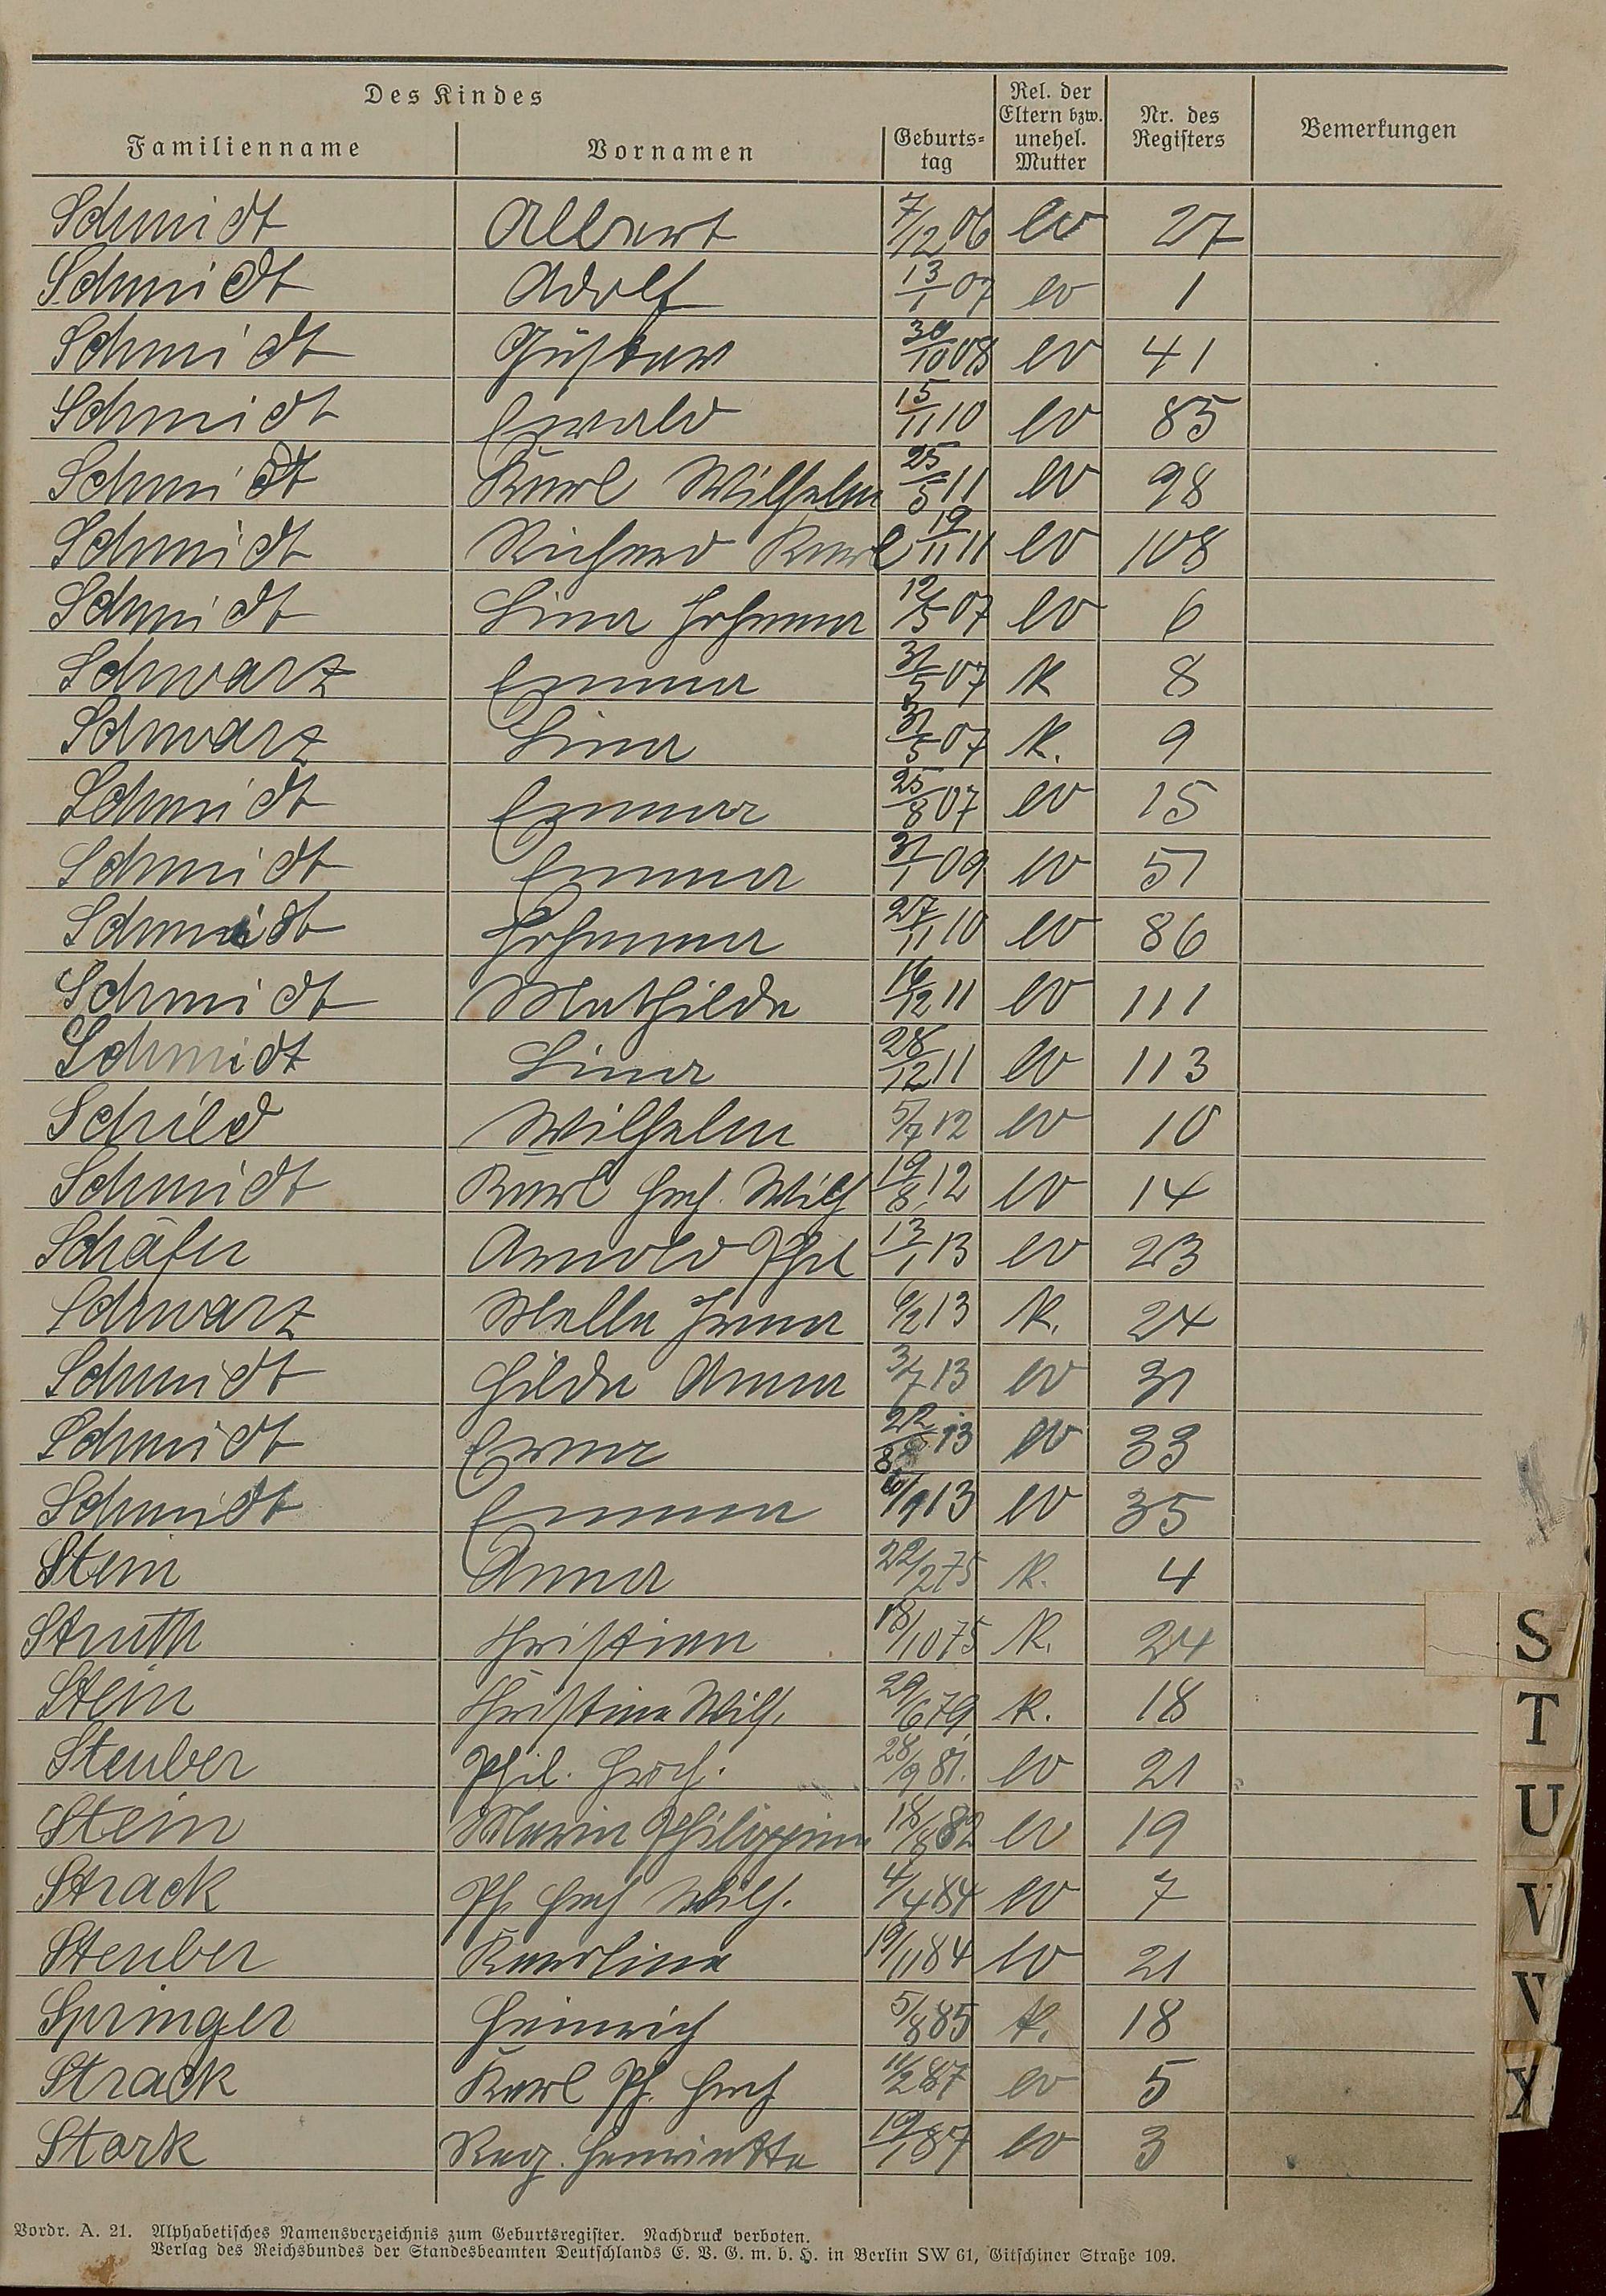 Des Kindes
Familienname Vornamen Geburts- tag Rel. der Eltern bzw. unehel. Mutter Nr. des Registers Bemerkungen
Schmidt Albert 7/12 06 ev 27
Schmidt Adolf 13/1 07 ev 1
Schmidt Gustav 30/10 08 ev 41
Schmidt Ewald 15/11 10 ev 85
Schmidt Karl Wilhelm 25/5 11 ev 98
Schmidt Richard Karl 19/11 11 ev 108
Schmidt Lina Johanna 12/5 07 ev 6
Schwarz Emma 31/5 07 K 8
Schwarz Lina 31/5 07 K. 9
Schmidt Emma 25/8 07 ev 15
Schmidt Emma 31/1 09 ev 51
Schmidt Johanna 27/11 10 ev 86
Schmidt Mathilde 16/12 11 ev 111
Schmidt Lina 28/12 11 ev 113
Schild Wilhelm 5/7 12 ev 10
Schmidt Karl Hch. Wilh 19/8 12 ev 14
Schäfer Arnold Phil 13/1 13 ev 23
Schwarz Mella Irma 6/2 13 K. 24
Schmidt Hilda Anna 3/7 13 ev 31
Schmidt Erna 22/8 13 ev 33
Schmidt Emma /9 13 ev 35
Stein Anna 22/2 75 K. 4
Struth Christian 18/10 75 K. 24
Stein Christine Wilh. 29/6 79 K. 18
Steuber Phil. 28/9 81. ev 21
Stein Maria Philippine 18/8 82 ev 19
Strack Ph Hch Wilh. 4/4 84 ev 7
Steuber Karoline 19/11 84 ev 21
Springer Heinrich 5/8 85 K. 18
Strack Karl Ph. Hch 11/2 87 ev 5
Stark Henriette 19/1 87 ev 3
S
T
U
V
W
X
Vordr. A. 21. Alphabetisches Namensverzeichnis zum Geburtsregister. Nachdruck verboten.
Verlag des Reichsbundes der Standesbeamten Deutschlands E. V. G. m. b. H. in Berlin SW 61, Gitschiner Straße 109.